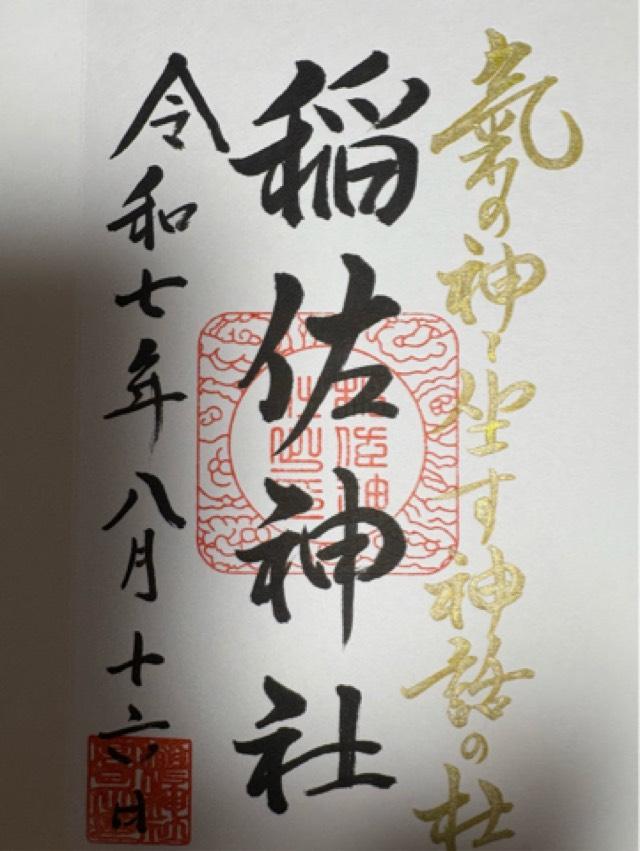 氣の神々坐す神話の杜
稲佐神社
令和七年八月十六日